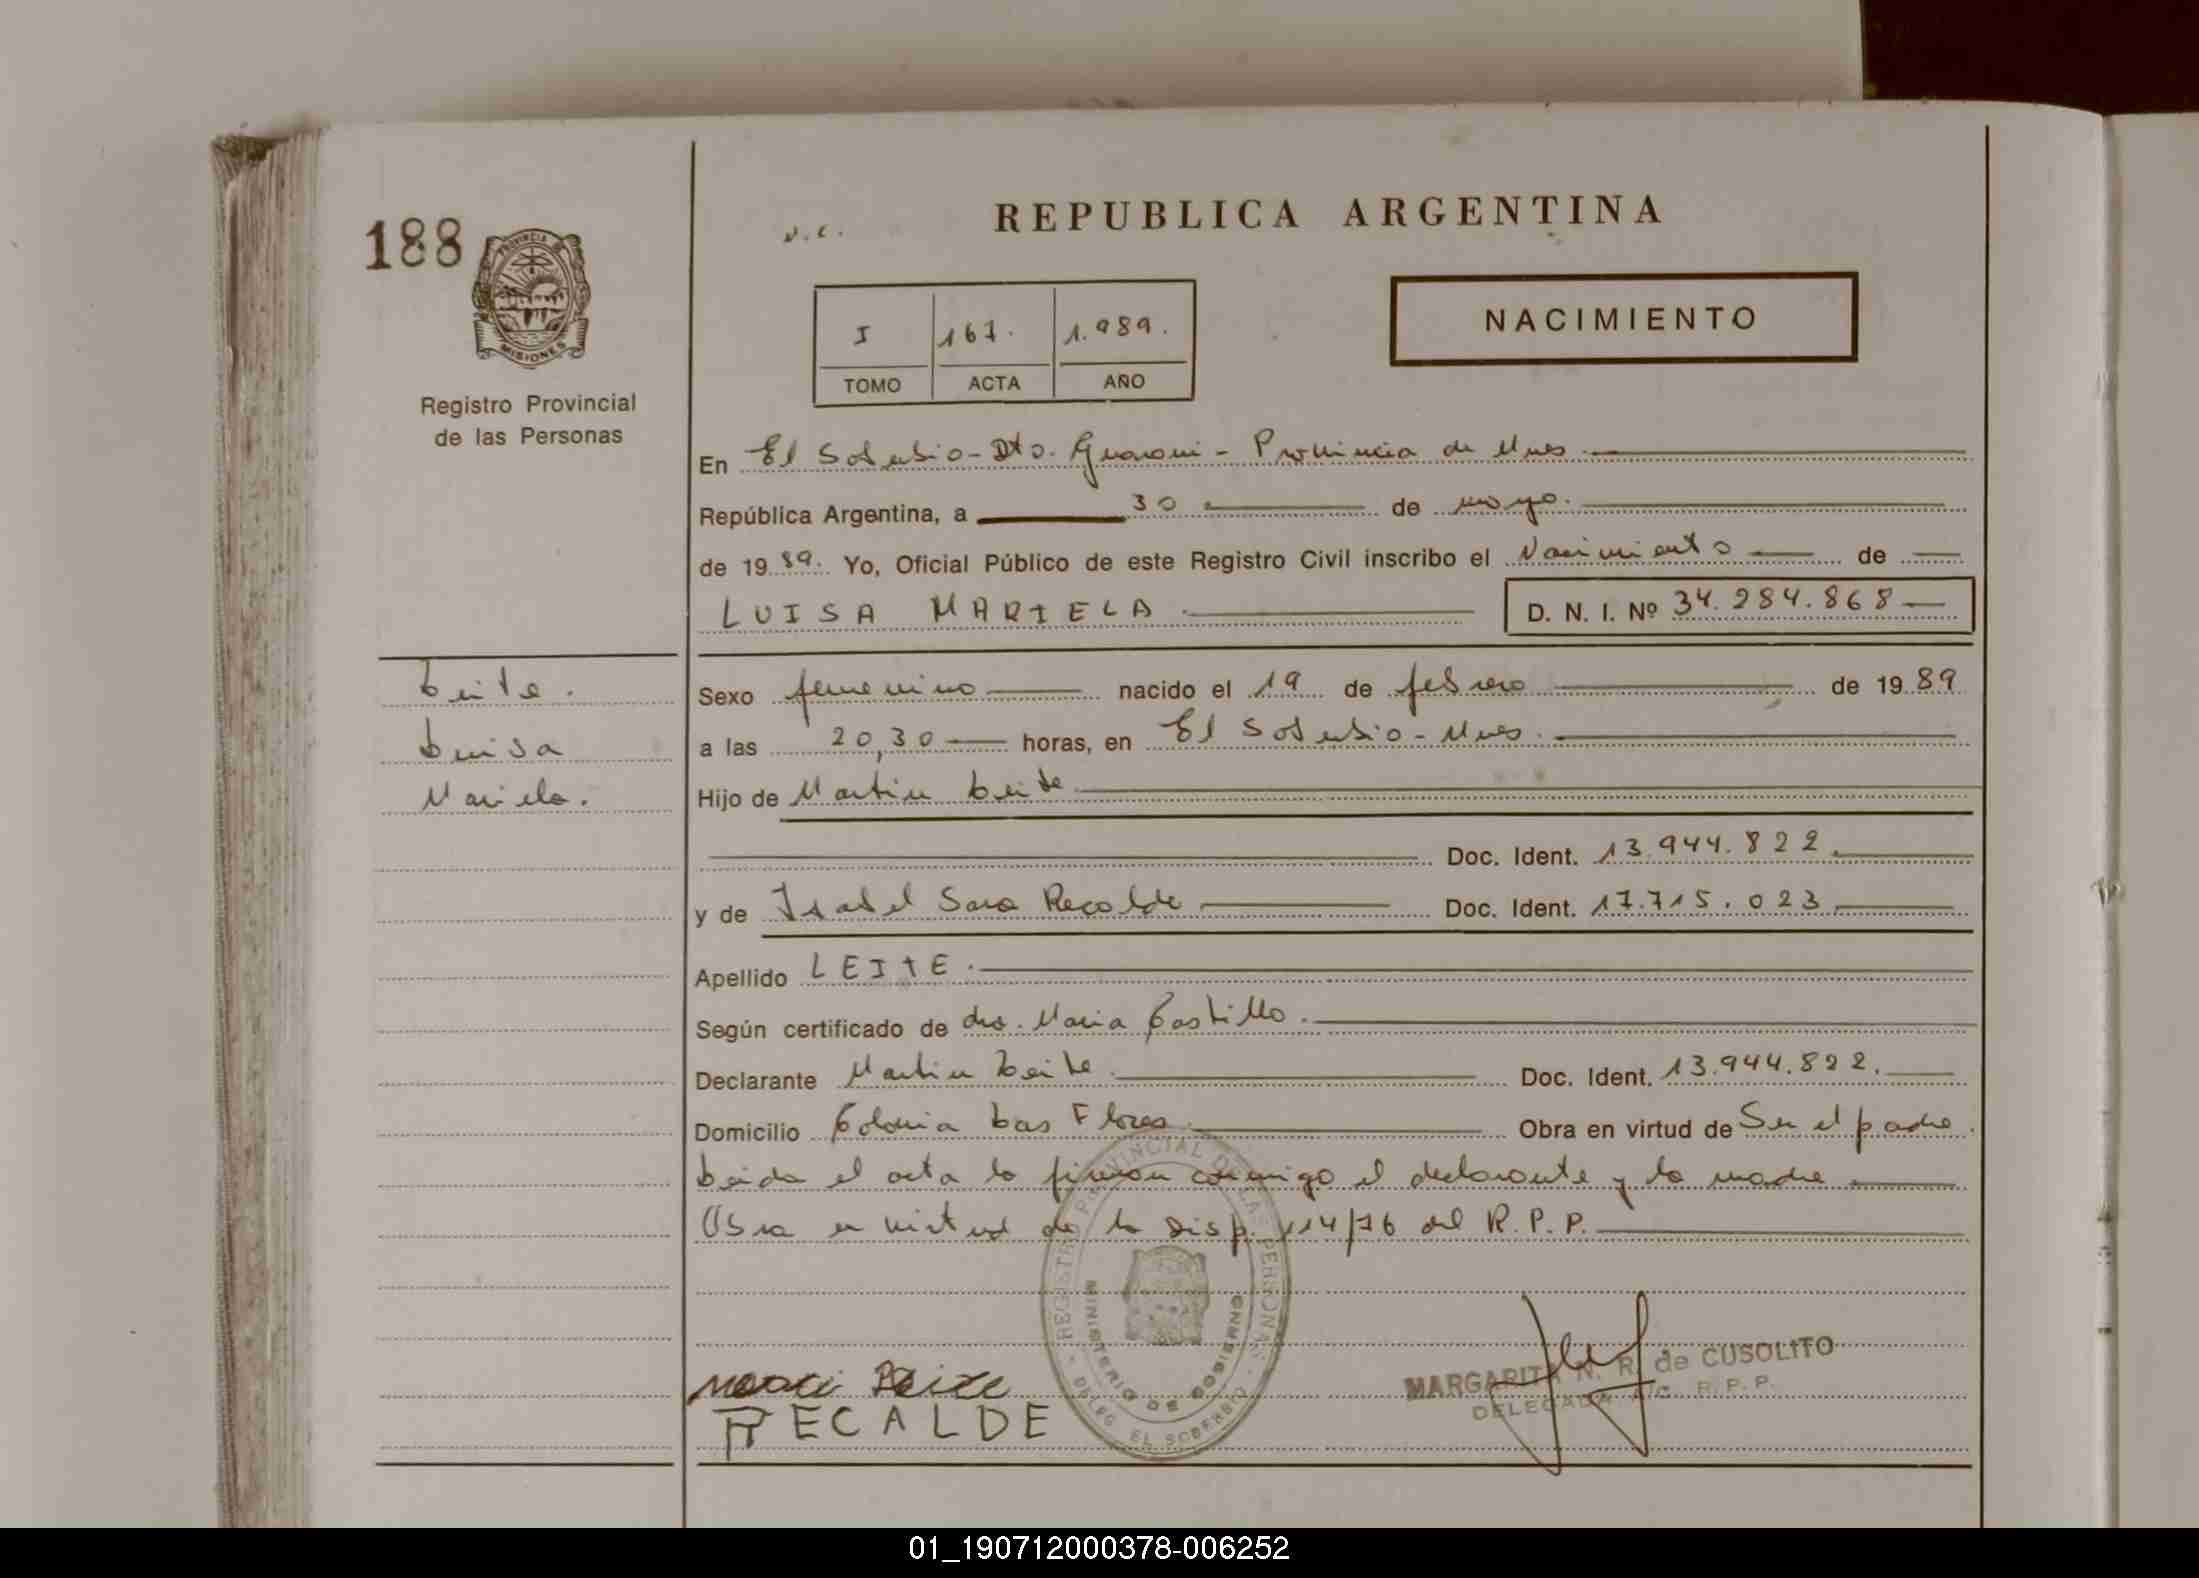 188
PROVINCIA DE
MISIONES
Registro Provincial
de las Personas
REPUBLICA ARGENTINA
I 167. 1.989.
TOMO ACTA AÑO
NACIMIENTO
En El Soberbio - Dto. Guarani - Provincia de Mnes
República Argentina, a 30 de mayo.
de 1989. Yo, Oficial Público de este Registro Civil inscribo el Nacimiento de
LUISA MARIELA D. N. I. Nº 34.284.868
Leite.
Luisa
Mariela.
Sexo femenino nacido el 19 de febrero de 1989
a las 20,30 horas, en El Soberbio - Mnes.
Hijo de Martin Leite
Doc. Ident. 13.944.822.
y de Isabel Sara Recalde Doc. Ident. 17.715.023
Apellido LEITE.
Según certificado de dra. Maria Castillo.
Declarante Martin Leite. Doc. Ident. 13.944.822.
Domicilio Colonia Las Flores. Obra en virtud de Ser el padre.
Leida el acta la firman conmigo el declarante y la madre
Obra en virtud de la Disp. 114/76 del R. P. P.
REGISTRO PROVINCIAL DE LAS PERSONAS
MINISTERIO DE GOBIERNO
DELEG. EL SOBERBIO
RECALDE
MARGARITA N. R. de CUSOLITO
DELEGADA R. P. P.
01_190712000378-006252